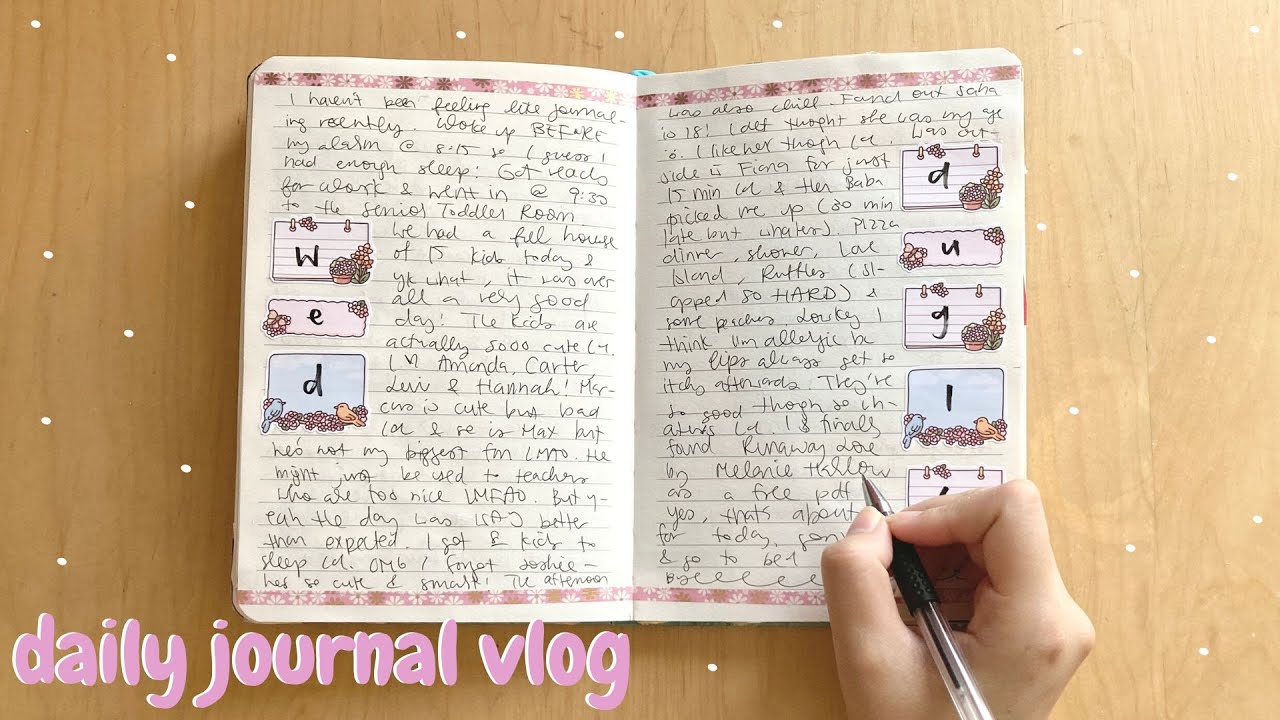 I haven't been feeling like journal-
ing recently. Woke up BEFORE
my alarm @ 8:15 so I guess I
had enough sleep! Got ready
for work & went in @ 9:30
to the Senior Toddler Room
We had a full house
of 15 kids today &
yk what, it was over
all a very good
day! The kids are
actually sooo cute
I ♡ Amanda, Carter,
Levi & Hannah! Mar-
cus is cute but bad
lol & so is Max but
he's not my biggest fan LMAO. He
might just be used to teachers
who are too nice LMFAO. But y-
eah the day was WAY better
than expected. I got 2 kids to
sleep lol. OMG I forgot
hes so cute & smart! The afternoon
w
e
d
was also chill. Found out
is 18! I thought she was my age
I like her though lol. Was out-
side for just
15 min lol & then Baba
picked me up (30 min
late but whatevs). Pizza
dinner, shower, Love
Island, Ruffles (sl-
apped SO HARD) &
some peaches I
think I'm allergic bc
my lips always get so
itchy afterwards. They're
so good though so
lol. I finally
found Runaway Love
by Melanie Harlow
as a free pdf
yes, thats about
for today,
& go to bed
Byeeeeee
d
u
g
l
daily journal vlog